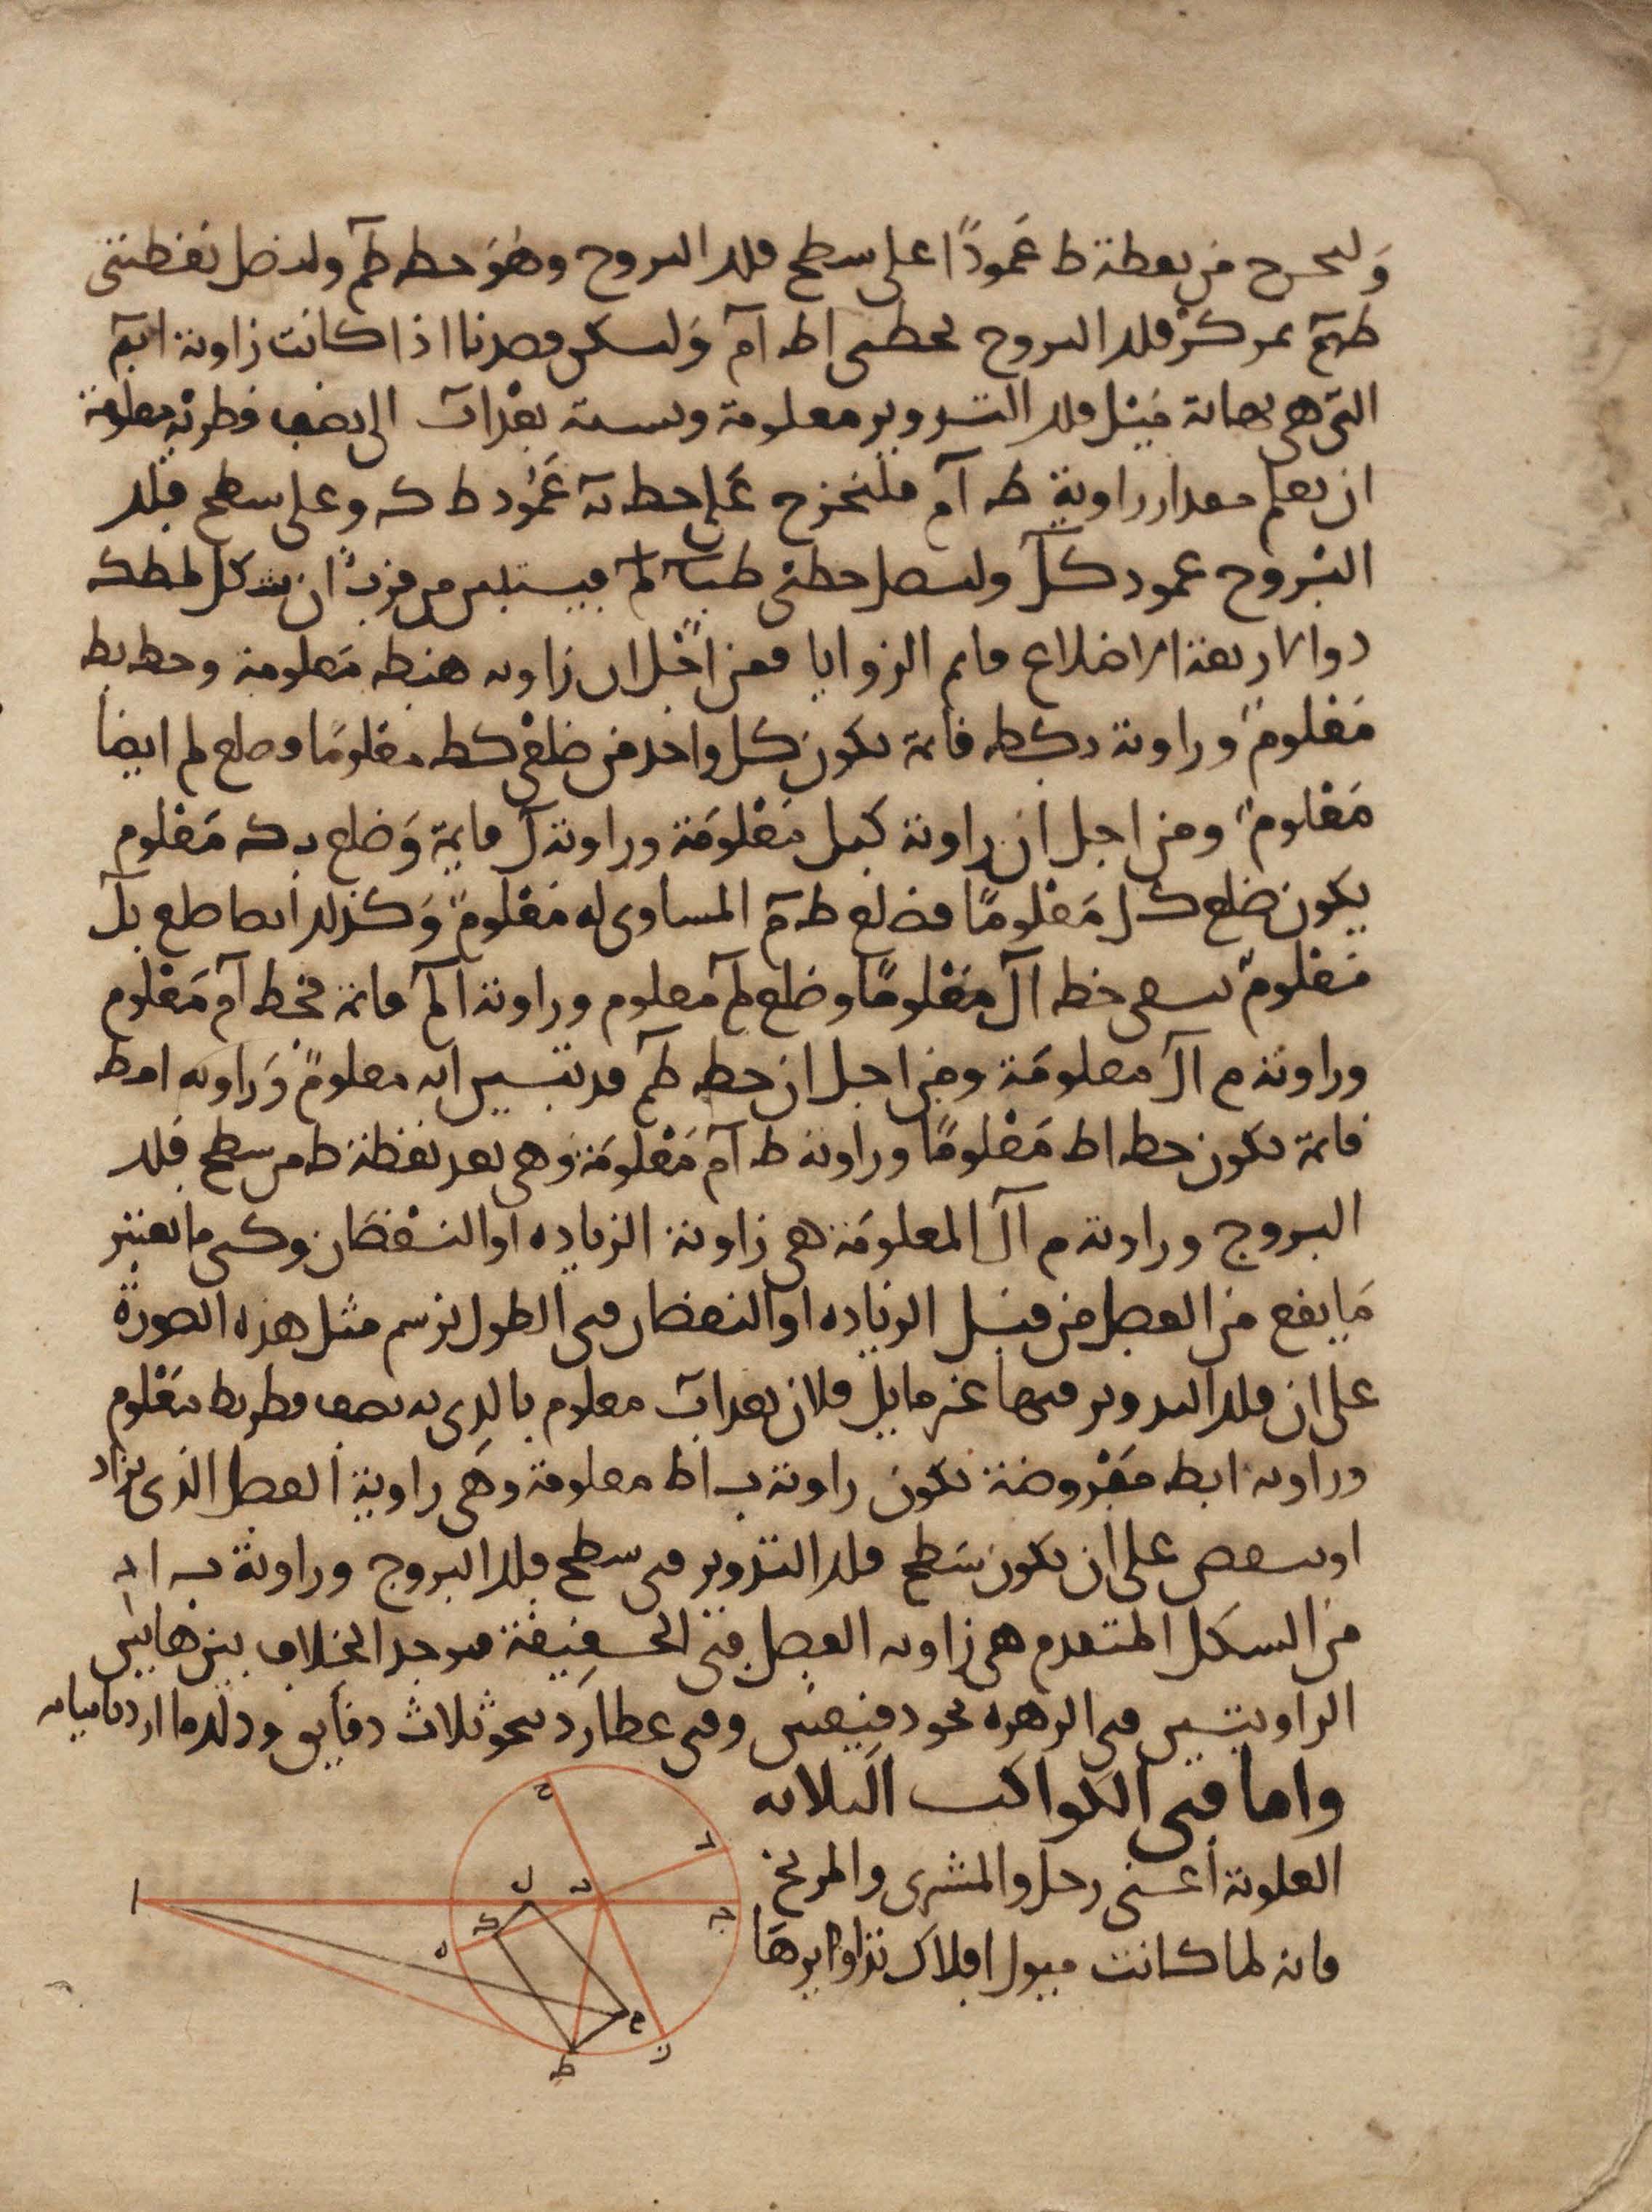 وليخرج من نقطة ط عمودًا على سطح فلك البروج وهو خط طم ولنصل نقطتي
طم بمركز فلك البروج بخطي اط ام وليكن قصدنا اذا كانت زاوية
التي هي نهاية ميل فلك التدوير معلومة ونسبة بعد اب الى نصف قطر به معلومة
ان نعلم مقدار زاوية ط ام فلنخرج على خط به عمود طك وعلى سطح فلك
البروج عمود كل ولنصل خطي طب لم فيستبين من قرب ان شكل لمطك
ذو الاربعة الاضلاع قائم الزوايا فمن اجل ان زاوية هبط معلومة وخط بط
معلوم وزاوية بكط قائمة يكون كل واحد من ضلعي كط معلومًا وضلع لم ايضا
معلوم ومن اجل ان زاوية كبل معلومة وزاوية ل قائمة وضلع بك معلوم
يكون ضلع كل معلومًا فضلع طم المساوي له معلوم وكذلك ايضا ضلع بل
معلوم يبقى خط ال معلومًا وضلع لم معلوم وزاوية الم قائمة فخط ام معلوم
وزاوية م ال معلومة ومن اجل ان خط طم قد تبين انه معلوم وزاوية امط
قائمة يكون خط اط معلومًا وزاوية ط ام معلومة وهي بعد نقطة ط من سطح فلك
البروج وزاوية م ال المعلومة هي زاوية الزيادة او النقصان وكي ما نعتبر
ما يقع من الفصل من قبل الزيادة او النقصان في الطول نرسم مثل هذه الصورة
على ان فلك التدوير فيها غير مايل فلان بعد اب معلوم بالذي به نصف قطر بط معلوم
وزاوية ابط مفروضة تكون زاوية ب اط معلومة وهي زاوية الفصل الذي يزاد
او ينقص على ان يكون سطح فلك التدوير في سطح فلك البروج وزاوية ب
من الشكل المتقدم هي زاوية الفصل في الحقيقة فيوجد الخلاف بين هاتين
الزاويتين في الزهرة نحو دقيقتين وفي عطارد نحو ثلاث دقايق وذلك ما اردنا بيانه
واما في الكواكب الثلاثة
العلوية اعني زحل والمشتري والمريخ
فانه لما كانت ميول افلاك تداويرها
ا ل ب ح د ه ك م ط ز